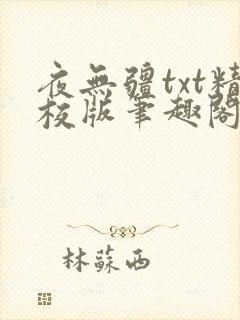 夜無疆txt精
校版筆趣閣
林蘇西